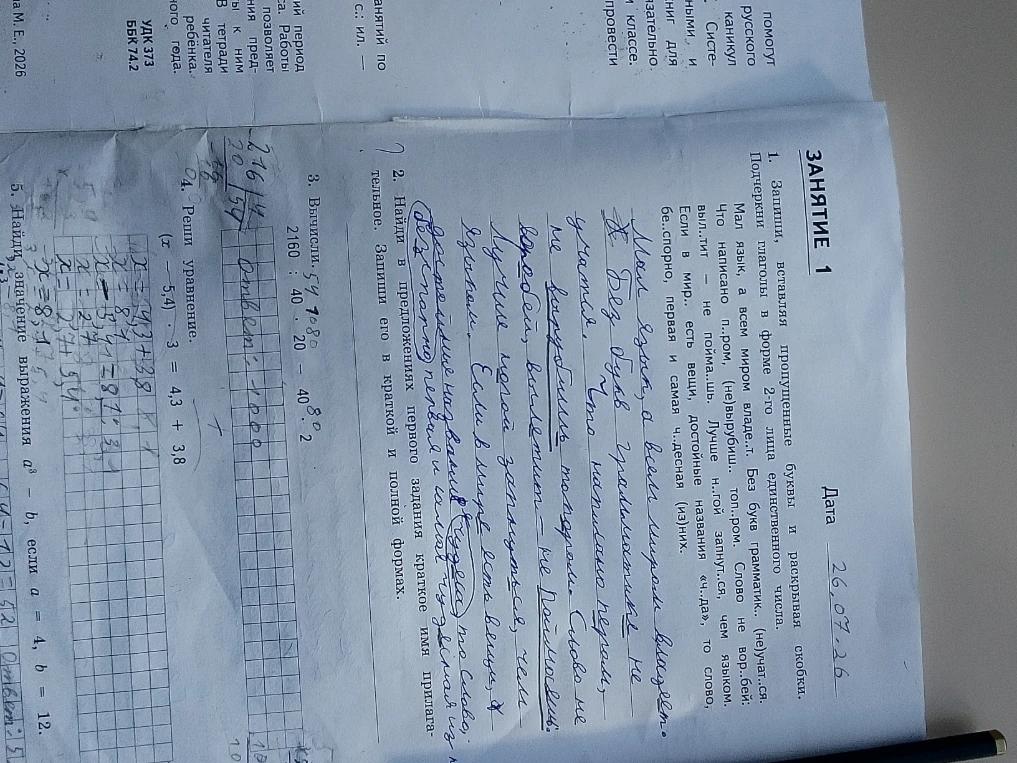 помогут
русского
каникул
Систе-
ными, и
ниг для
язательно
м классе.
провести
анятий по
с.: ил. —
ий период
са. Работы
позволяет
ния пред-
ы к ним
В тетради
читателя
ребёнка.
ного года.
УДК 373
ББК 74.2
а М. Е., 2026
ЗАНЯТИЕ 1
Дата 26.07.26
1. Запиши, вставляя пропущенные буквы и раскрывая скобки.
Подчеркни глаголы в форме 2-го лица единственного числа.
Мал язык, а всем миром владе..т. Без букв грамматик.. (не)учат..ся.
Что написано п..ром, (не)вырубиш.. топ..ром. Слово не вор..бей:
выл..тит — не пойма..шь. Лучше н..гой запнут..ся, чем языком.
Если в мир.. есть вещи, достойные названия «ч..да», то слово,
бе..спорно, первая и самая ч..десная (из)них.
Мал язык, а всем миром владеет.
Без букв грамматике не
учатся. Что написано пером,
не вырубишь топором. Слово не
воробей, вылетит — не поймаешь.
Лучше ногой запнуться, чем
языком. Если в мире есть вещи,
достойные названия чуда, то слово,
первая и самая чудесная из
2. Найди в предложениях первого задания краткое имя прилага-
тельное. Запиши его в краткой и полной формах.
3. Вычисли.
2160 : 40 · 20 − 40 · 2
Ответ: 1000
4. Реши уравнение.
(x − 5,4) · 3 = 4,3 + 3,8
x = 4,3 + 3,8
x − 5,4 = 8,1 : 3
x = 2,7 + 5,4
x = 8,1
5. Найди значение выражения a³ − b, если a = 4, b = 12.